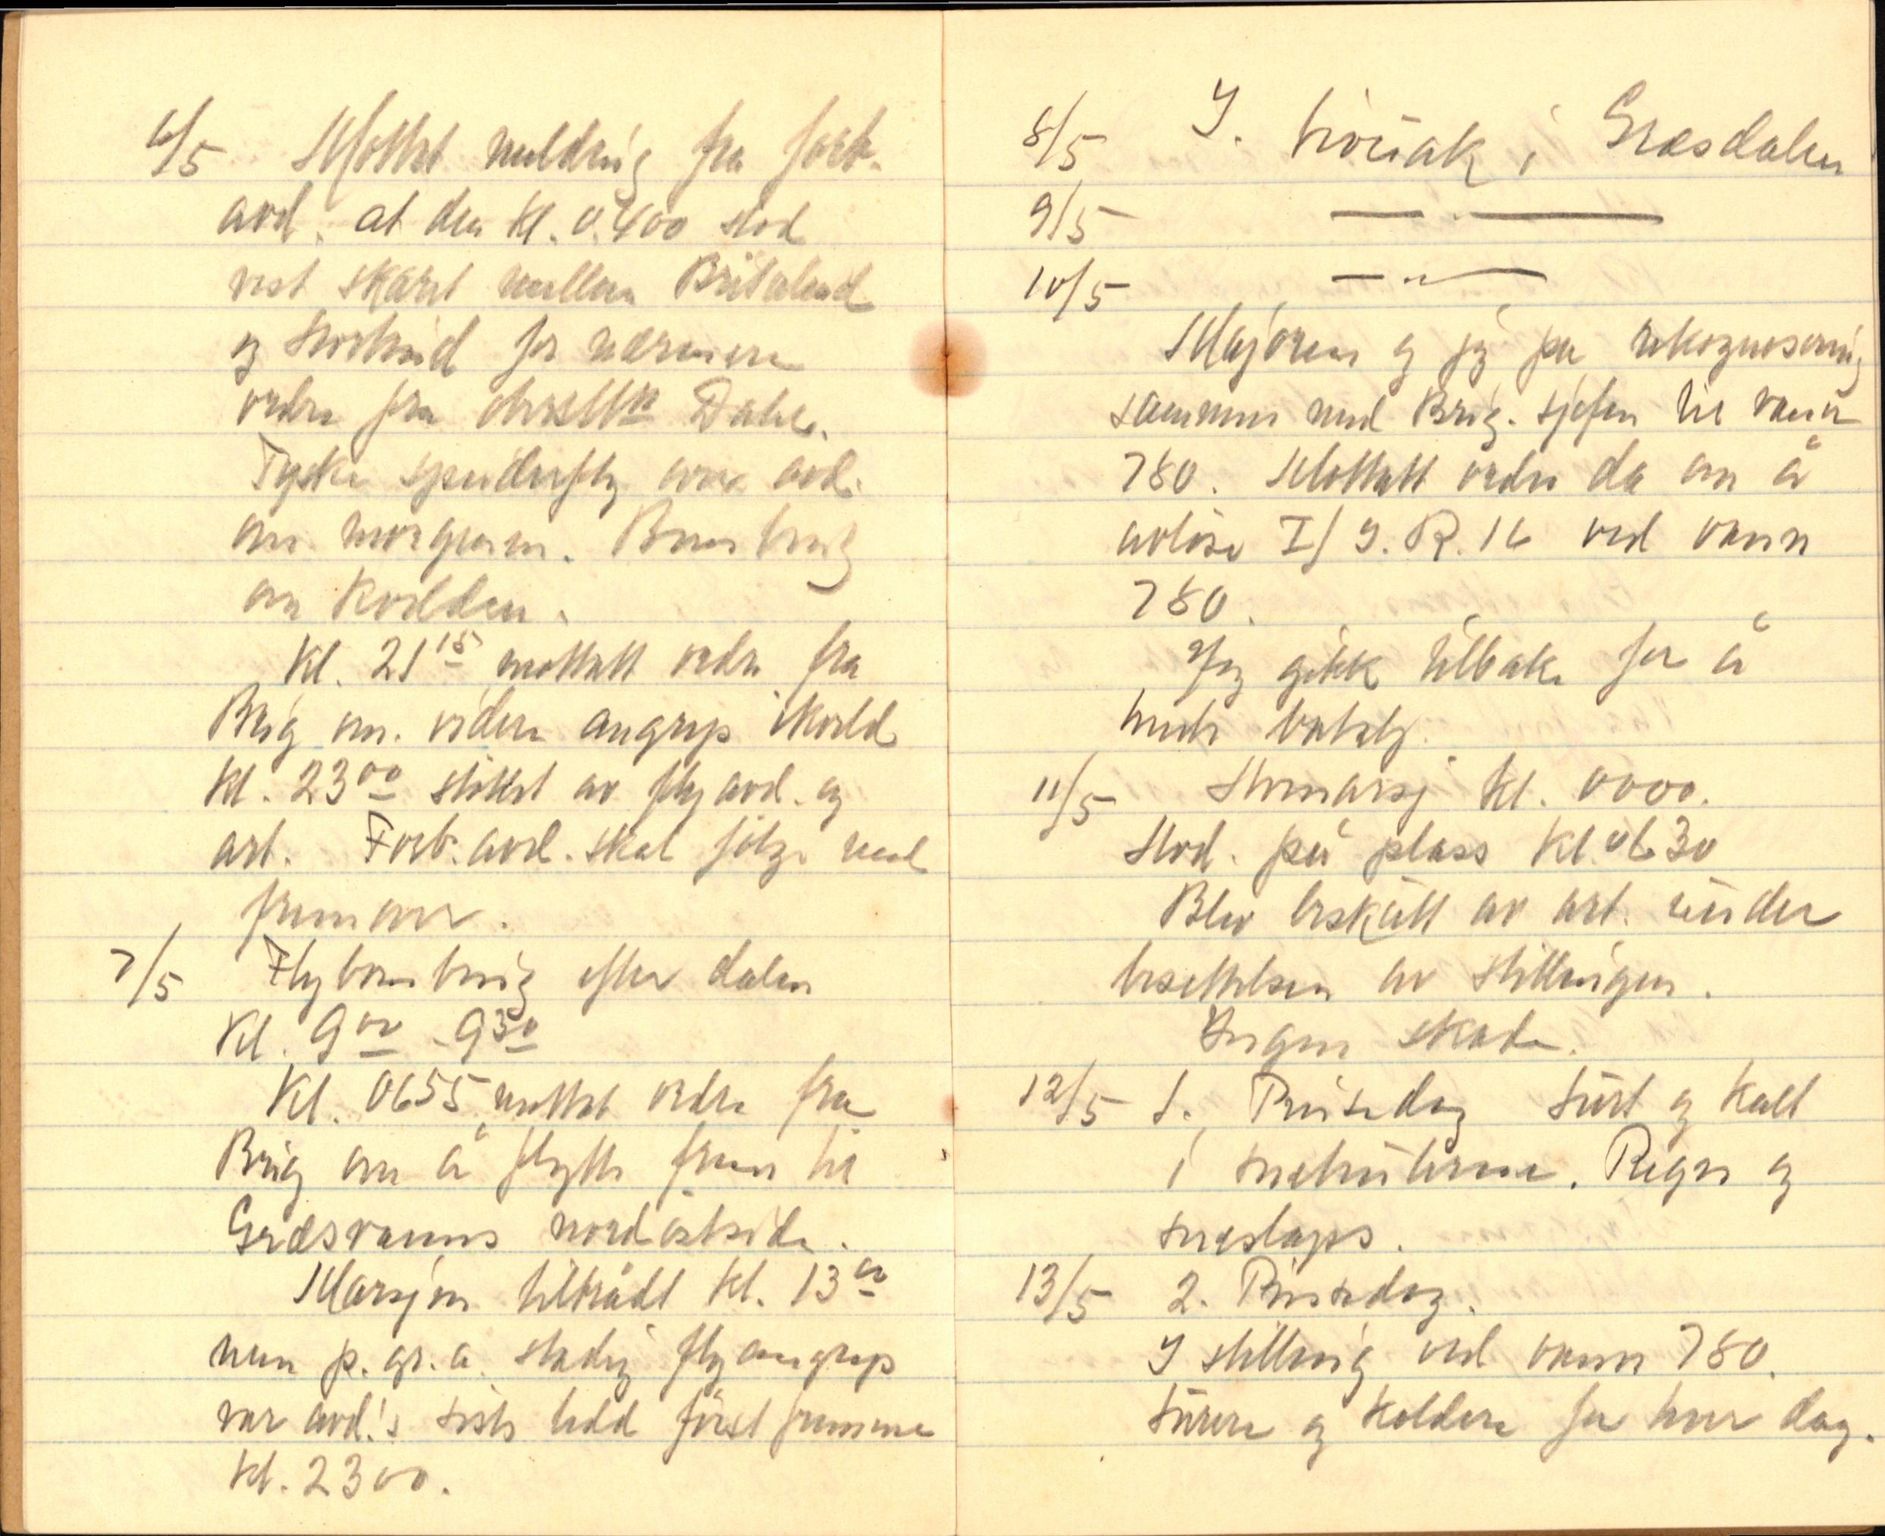 6/5 Mottat melding fra fort.
avd. at den kl. 0400 stod
vest skaret mellem Britatind
og Storhaid for nærmere
ordre fra oberstltn Dahl.
Tyske speiderfly over avd.
om morgenen. Bombing
om kvelden.
Kl. 21 15 mottatt ordre fra
Brig om videre angrep ikveld
kl. 23 00 støttet av flyavd. og
art. Fort. avd. skal følge med
fremover.
7/5 Flybombing efter dalen
Kl. 9 00 - 9 30
Kl. 0655 mottat ordre fra
Brig om å flytte frem til
Græsvanns nordøstside.
Marsjen tiltrådt kl. 13 00
men p. gr. a. stadig flyangrep
var avd.'s siste ledd først fremme
kl. 2300.
8/5 I bivuak i Græsdalen
9/5 — " —
10/5 — " —
Majoren og jeg på rekognosering
sammen med Brig. sjefen til vann
780. Mottatt ordre da om å
avløse I/I.R. 16 ved vann
780.
Jeg gikk tilbake for å
hente bataljo.
11/5 Avmarsj kl. 0000.
Stod på plass kl. 0630
Blev beskutt av art. under
besettelsen av stillingen.
Ingen skade.
12/5 1. Pinsedag Surt og kalt
i snehulerne. Regn og
sneslaps.
13/5 2. Pinsedag.
I stilling ved vann 780.
Surere og koldere for hver dag.